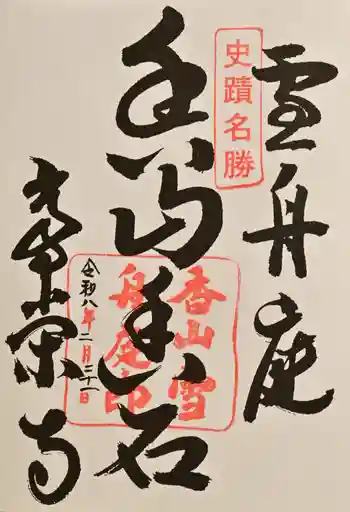 雪舟庭
史蹟名勝
香山
石
香山雪
舟庭印
令和八年二月二十一日
常栄寺